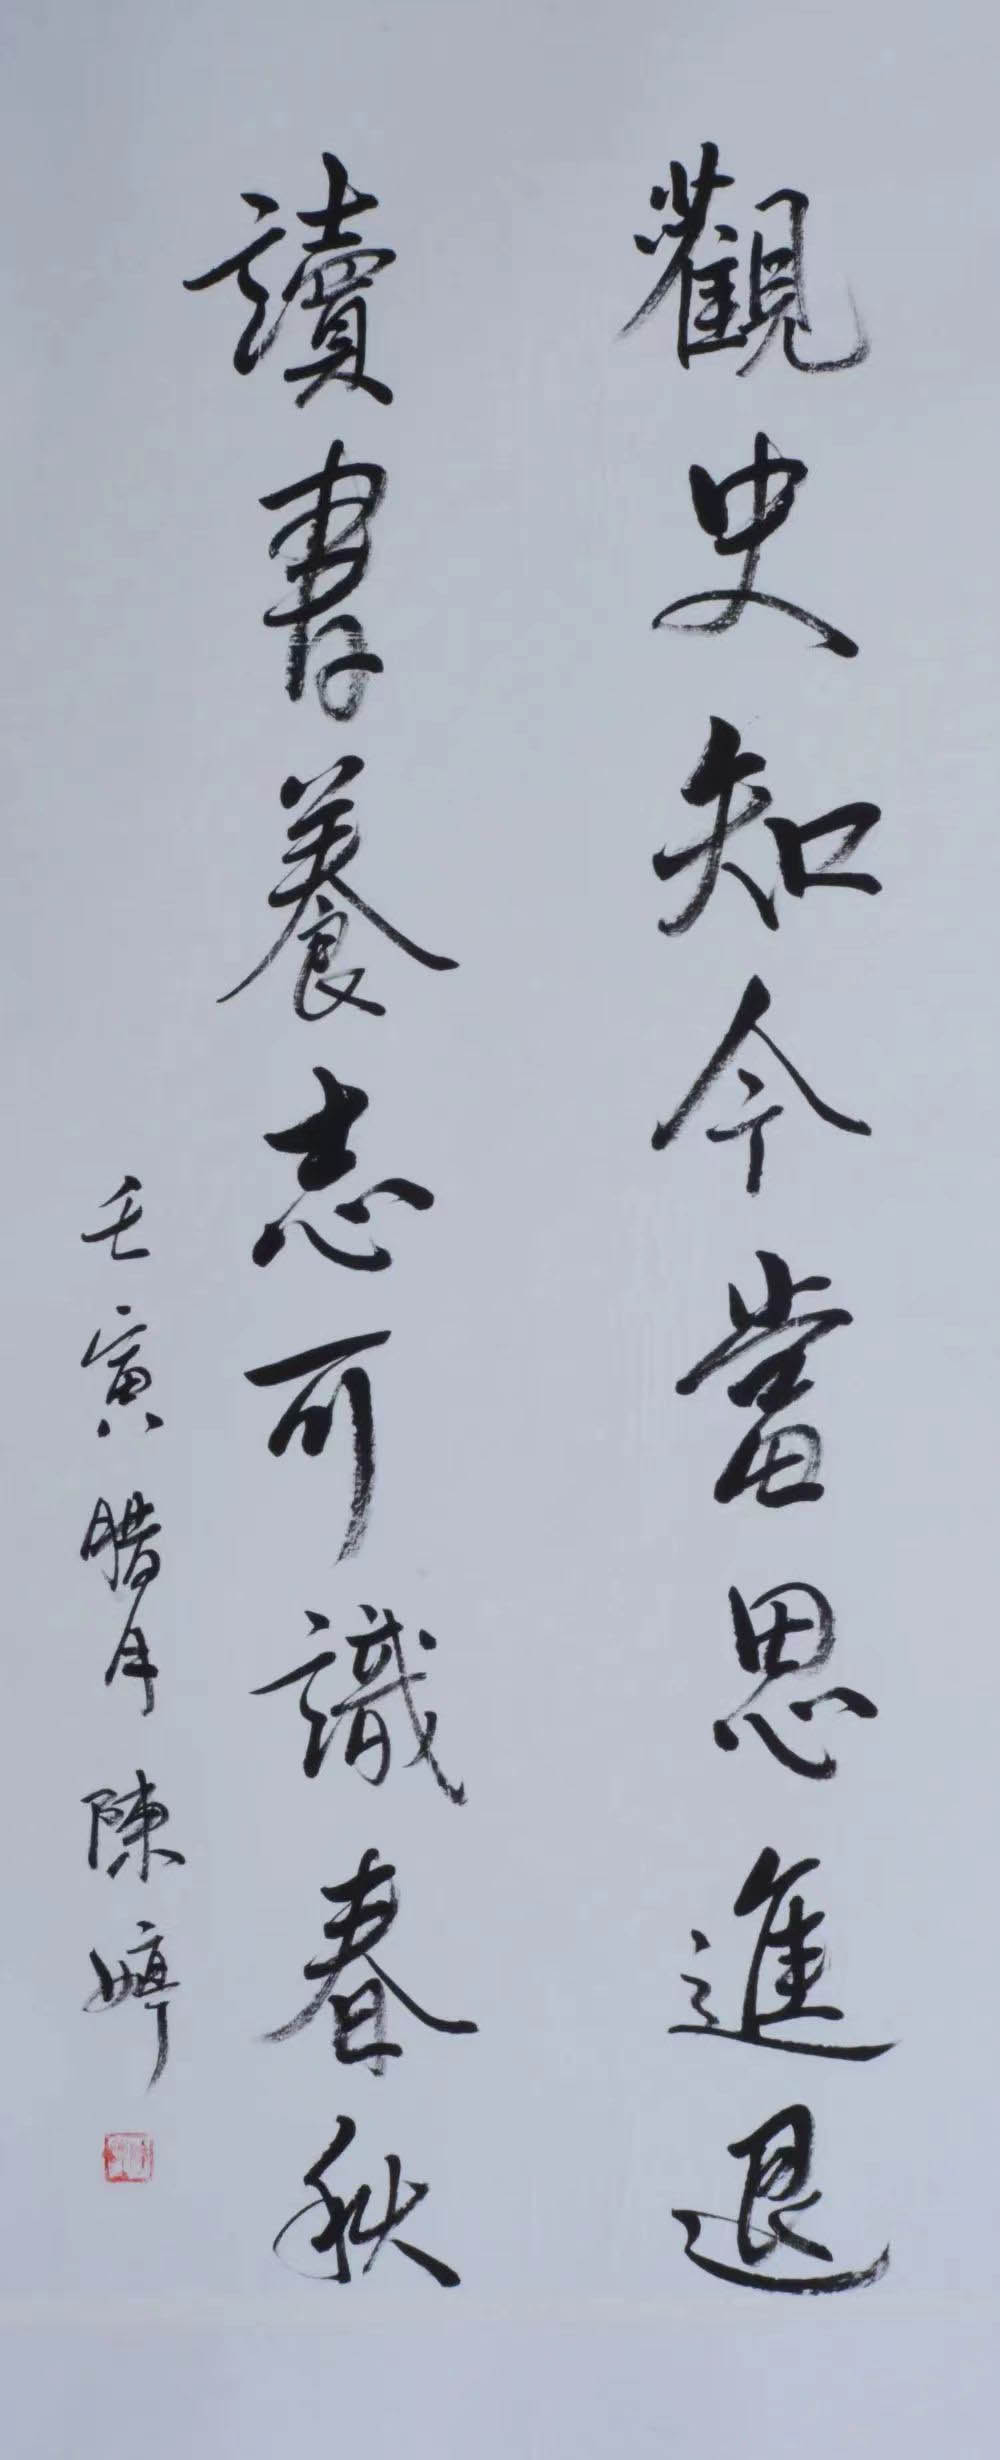 觀史知今當思進退
讀書養志可識春秋
壬寅腊月陳婷